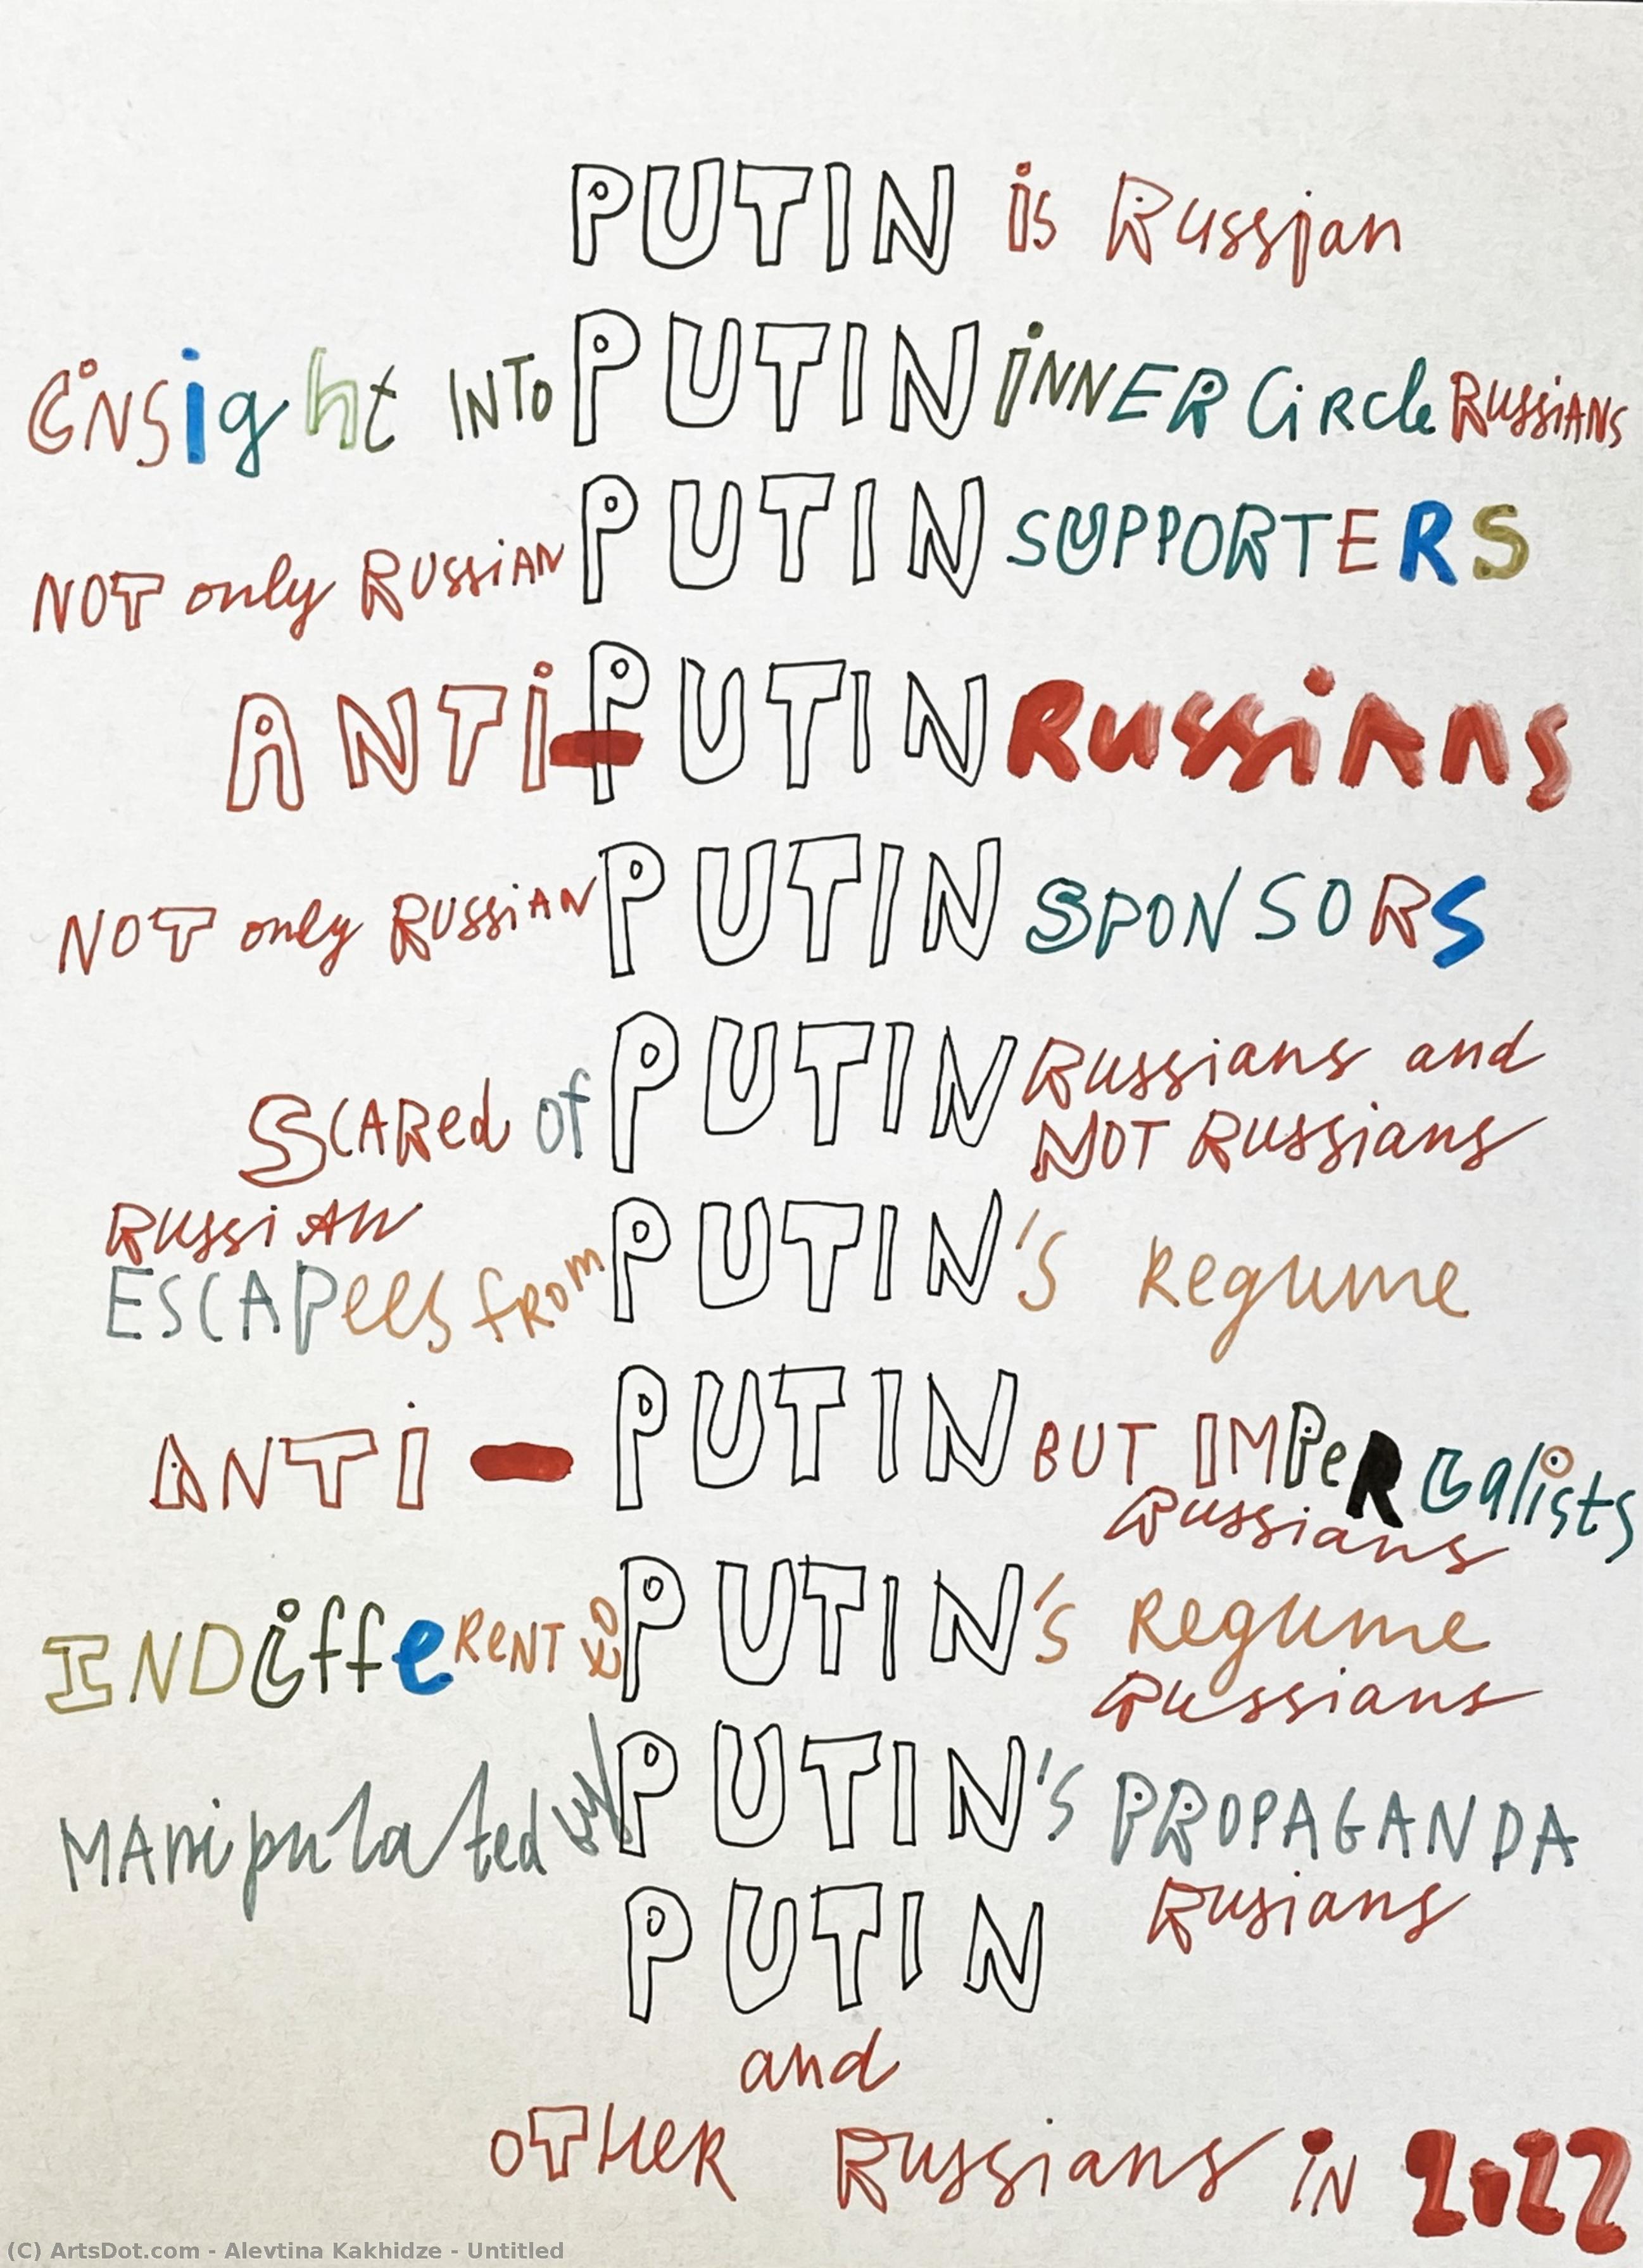 PUTIN is Russian
insight INTO PUTIN iNNER CiRcle RussiANS
NOT only RussiAN PUTIN SUPPORTERS
ANTi-PUTIN Russians
NOT only RussiAN PUTIN SPONSORS
SCARed of PUTIN Russians and
NOT Russians
RussiAN
ESCAPees fROm PUTIN's Regume
ANTi - PUTIN BUT IMPeRialists
Russians
INDiffeReNT to PUTIN's Regume
Russians
MAnipulated by PUTIN's PROPAGANDA
Rusians
PUTIN
and
OTHeR Russians iN 2022
(C) ArtsDot.com - Alevtina Kakhidze - Untitled